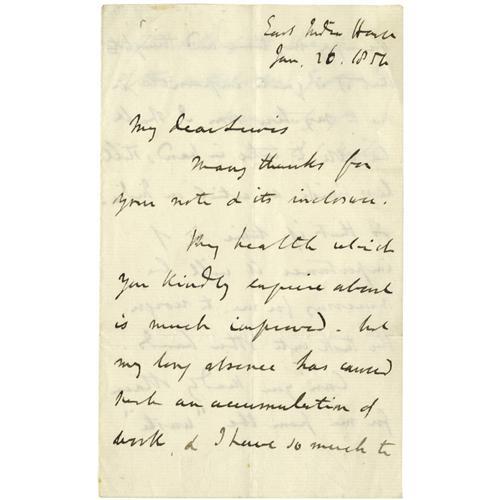 East India House
Jan. 26. 1854
My dear Lewis
Many thanks for
your note & its inclosure.
My health which
you kindly enquire about
is much improved. but
my long absence has caused
such an accumulation of
work, & I have so much to